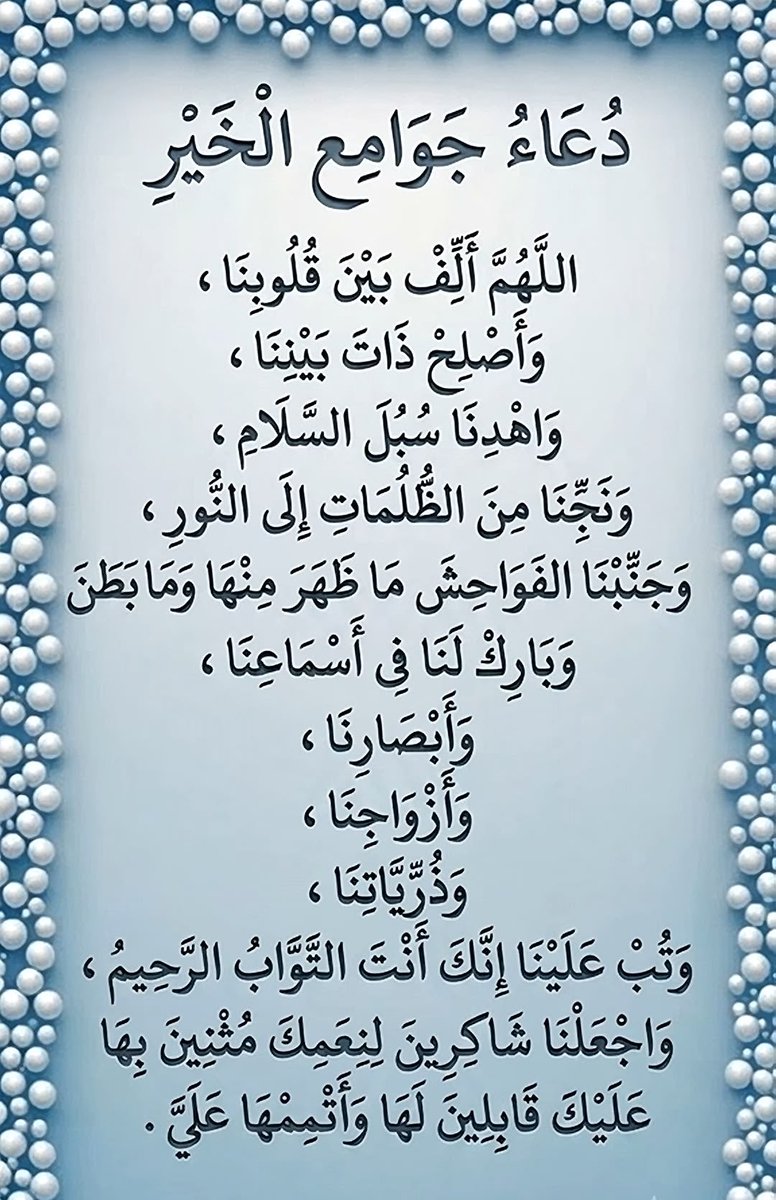 دُعَاءُ جَوَامِعِ الْخَيْرِ
اللَّهُمَّ أَلِّفْ بَيْنَ قُلُوبِنَا ،
وَأَصْلِحْ ذَاتَ بَيْنِنَا ،
وَاهْدِنَا سُبُلَ السَّلَامِ ،
وَنَجِّنَا مِنَ الظُّلُمَاتِ إِلَى النُّورِ ،
وَجَنِّبْنَا الفَوَاحِشَ مَا ظَهَرَ مِنْهَا وَمَا بَطَنَ
وَبَارِكْ لَنَا فِي أَسْمَاعِنَا ،
وَأَبْصَارِنَا ،
وَأَزْوَاجِنَا ،
وَذُرِّيَّاتِنَا ،
وَتُبْ عَلَيْنَا إِنَّكَ أَنْتَ التَّوَّابُ الرَّحِيمُ ،
وَاجْعَلْنَا شَاكِرِينَ لِنِعَمِكَ مُثْنِينَ بِهَا
عَلَيْكَ قَابِلِينَ لَهَا وَأَتْمِمْهَا عَلَيَّ .